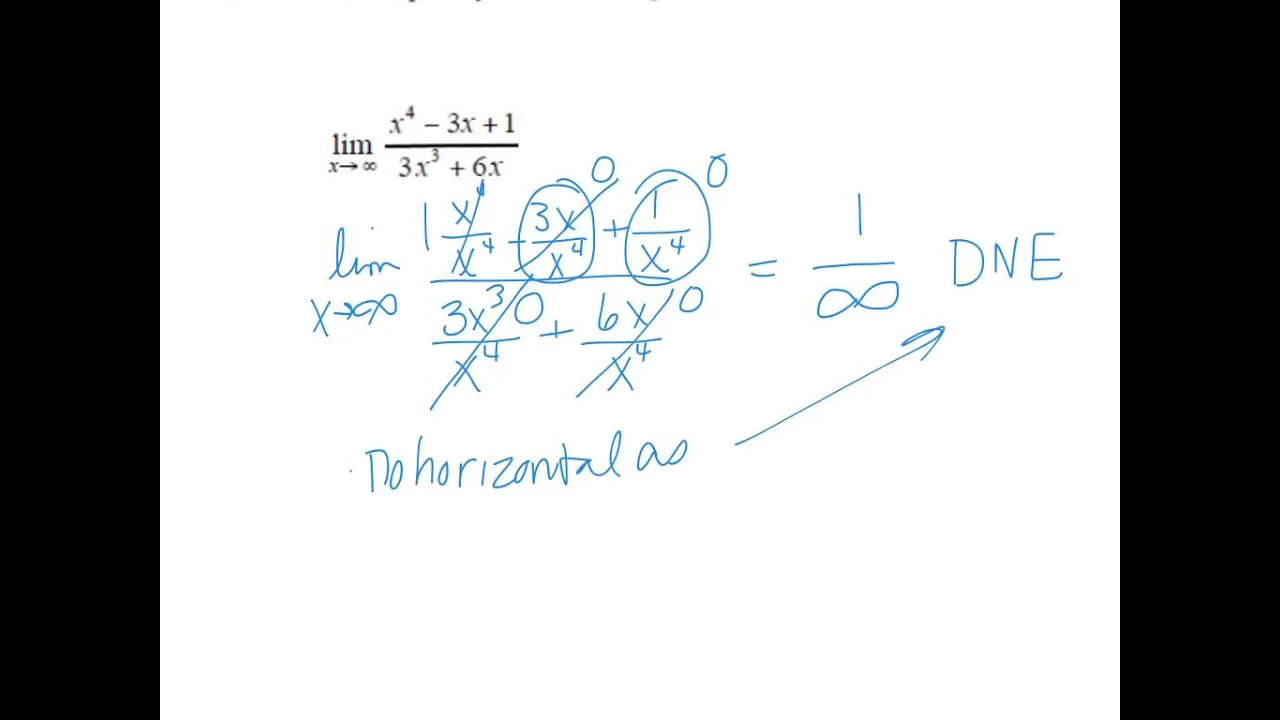 lim x→∞ (x⁴ − 3x + 1)/(3x³ + 6x)
lim x→∞ (1 x⁴/x⁴ − 3x/x⁴ 0 + 1/x⁴ 0)/(3x³/x⁴ 0 + 6x/x⁴ 0) = 1/∞ DNE
no horizontal as